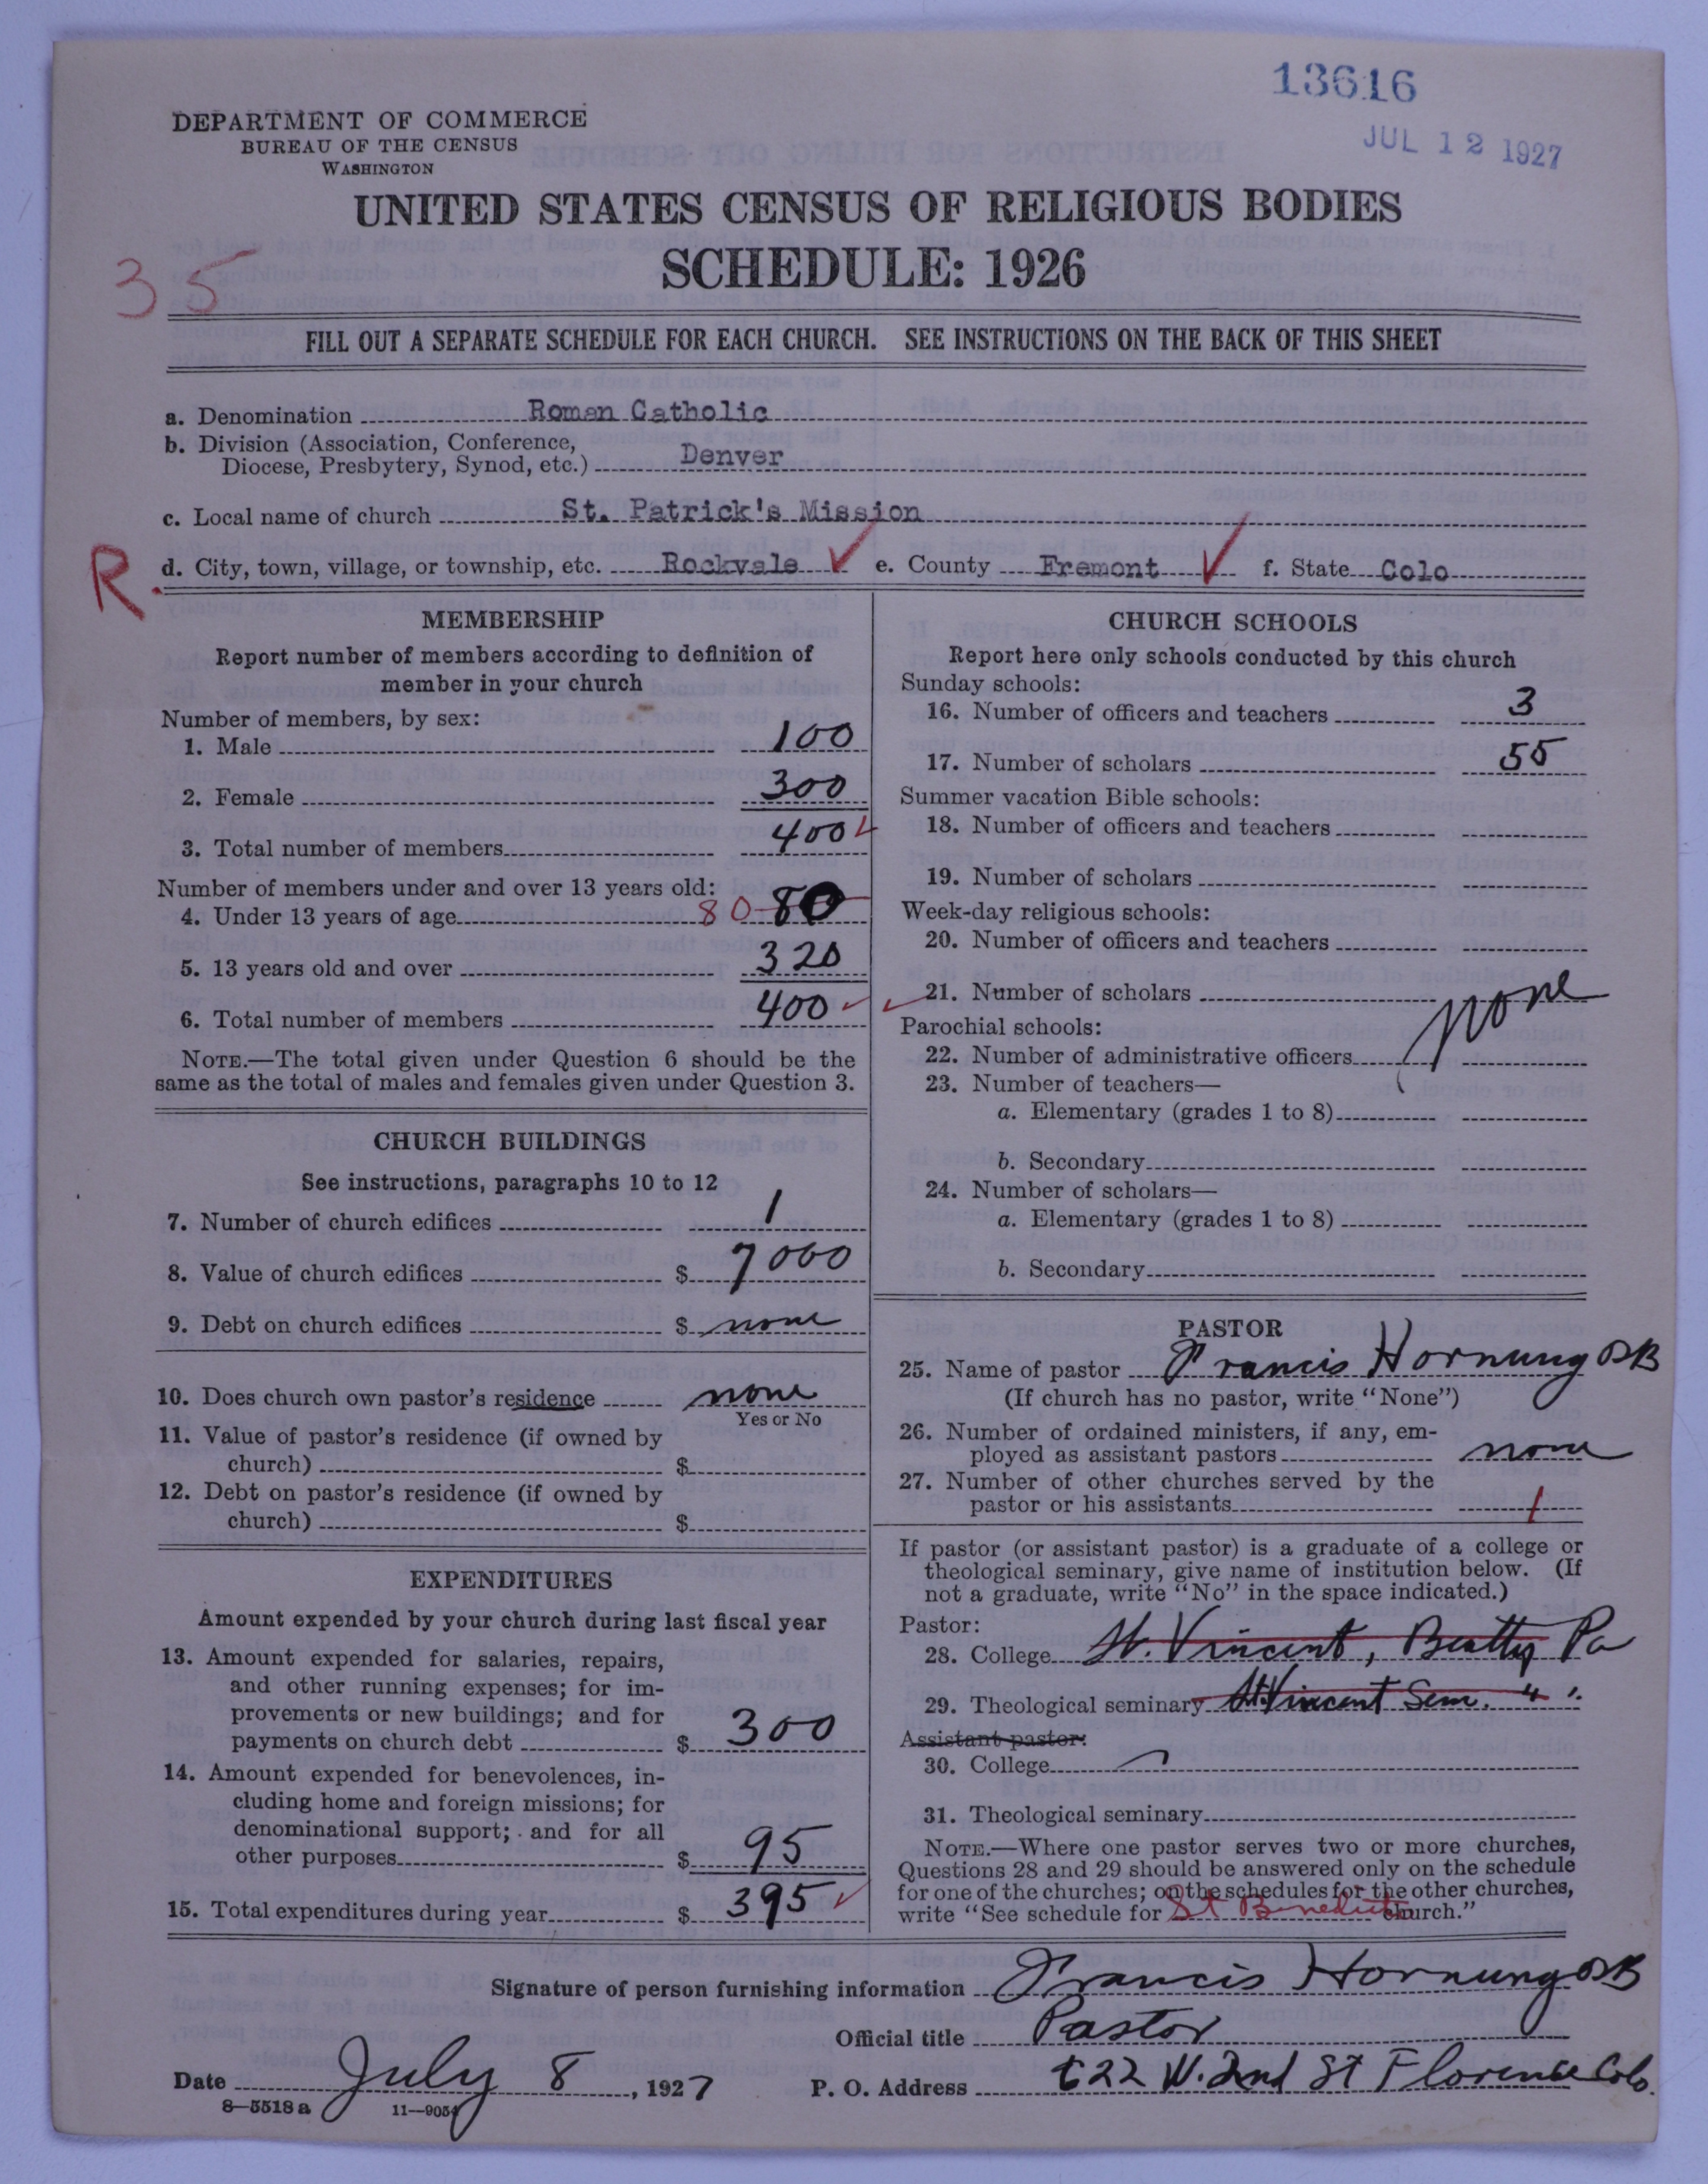 13616
JUL 12 1927
DEPARTMENT OF COMMERCE
BUREAU OF THE CENSUS
WASHINGTON
UNITED STATES CENSUS OF RELIGIOUS BODIES
SCHEDULE: 1926
35
FILL OUT A SEPARATE SCHEDULE FOR EACH CHURCH. SEE INSTRUCTIONS ON THE BACK OF THIS SHEET
a. Denomination Roman Catholic
b. Division (Association, Conference,
Diocese, Presbytery, Synod, etc.) Denver
c. Local name of church St. Patrick's Mission
R. d. City, town, village, or township, etc. Rockvale e. County Fremont f. State Colo
MEMBERSHIP
Report number of members according to definition of
member in your church
Number of members, by sex:
1. Male 100
2. Female 300
3. Total number of members 400
Number of members under and over 13 years old:
4. Under 13 years of age 80 80
5. 13 years old and over 320
6. Total number of members 400
NOTE.—The total given under Question 6 should be the
same as the total of males and females given under Question 3.
CHURCH BUILDINGS
See instructions, paragraphs 10 to 12
7. Number of church edifices 1
8. Value of church edifices $ 7000
9. Debt on church edifices $ none
10. Does church own pastor's residence none
Yes or No
11. Value of pastor's residence (if owned by
church) $
12. Debt on pastor's residence (if owned by
church) $
EXPENDITURES
Amount expended by your church during last fiscal year
13. Amount expended for salaries, repairs,
and other running expenses; for im-
provements or new buildings; and for
payments on church debt $ 300
14. Amount expended for benevolences, in-
cluding home and foreign missions; for
denominational support; and for all
other purposes $ 95
15. Total expenditures during year $ 395
CHURCH SCHOOLS
Report here only schools conducted by this church
Sunday schools:
16. Number of officers and teachers 3
17. Number of scholars 55
Summer vacation Bible schools:
18. Number of officers and teachers
19. Number of scholars
Week-day religious schools:
20. Number of officers and teachers
21. Number of scholars none
Parochial schools:
22. Number of administrative officers
23. Number of teachers—
a. Elementary (grades 1 to 8)
b. Secondary
24. Number of scholars—
a. Elementary (grades 1 to 8)
b. Secondary
PASTOR
25. Name of pastor Francis Hornung OSB
(If church has no pastor, write "None")
26. Number of ordained ministers, if any, em-
ployed as assistant pastors none
27. Number of other churches served by the
pastor or his assistants 1
If pastor (or assistant pastor) is a graduate of a college or
theological seminary, give name of institution below. (If
not a graduate, write "No" in the space indicated.)
Pastor:
28. College St. Vincent, Beatty Pa
29. Theological seminary St. Vincent Sem. " "
Assistant pastor:
30. College
31. Theological seminary
NOTE.—Where one pastor serves two or more churches,
Questions 28 and 29 should be answered only on the schedule
for one of the churches; on the schedules for the other churches,
write "See schedule for St Benedicts church."
Signature of person furnishing information Francis Hornung OSB
Official title Pastor
Date July 8, 1927 P. O. Address 622 W. 2nd St Florence Colo.
8—5518 a 11—9054